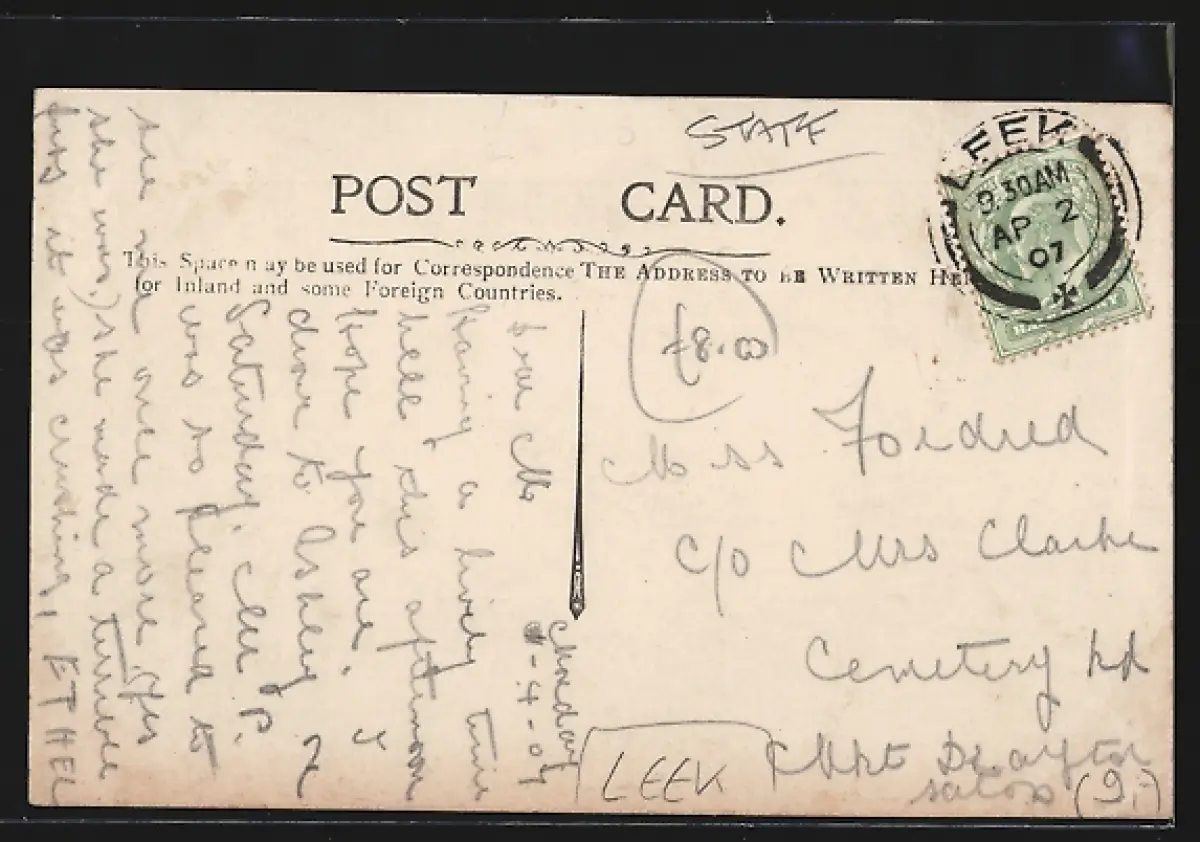 STAFF
POST CARD.
This Space may be used for Correspondence
for Inland and some Foreign Countries.
THE ADDRESS TO BE WRITTEN HE
LEEK
9.30AM
AP 2
07
£8.00
Miss Fordred
c/o Mrs Clarke
Cemetery Rd
Mkt Drayton
Salop (9)
LEEK
Monday
-4-07
Dear M
Having a lively time
here this afternoon
hope you are. I
down to Ashley
Saturday. Mr P.
was so pleased to
see me once more. (Yes
she was,) she made a tumble
it was crushing, ETHEL